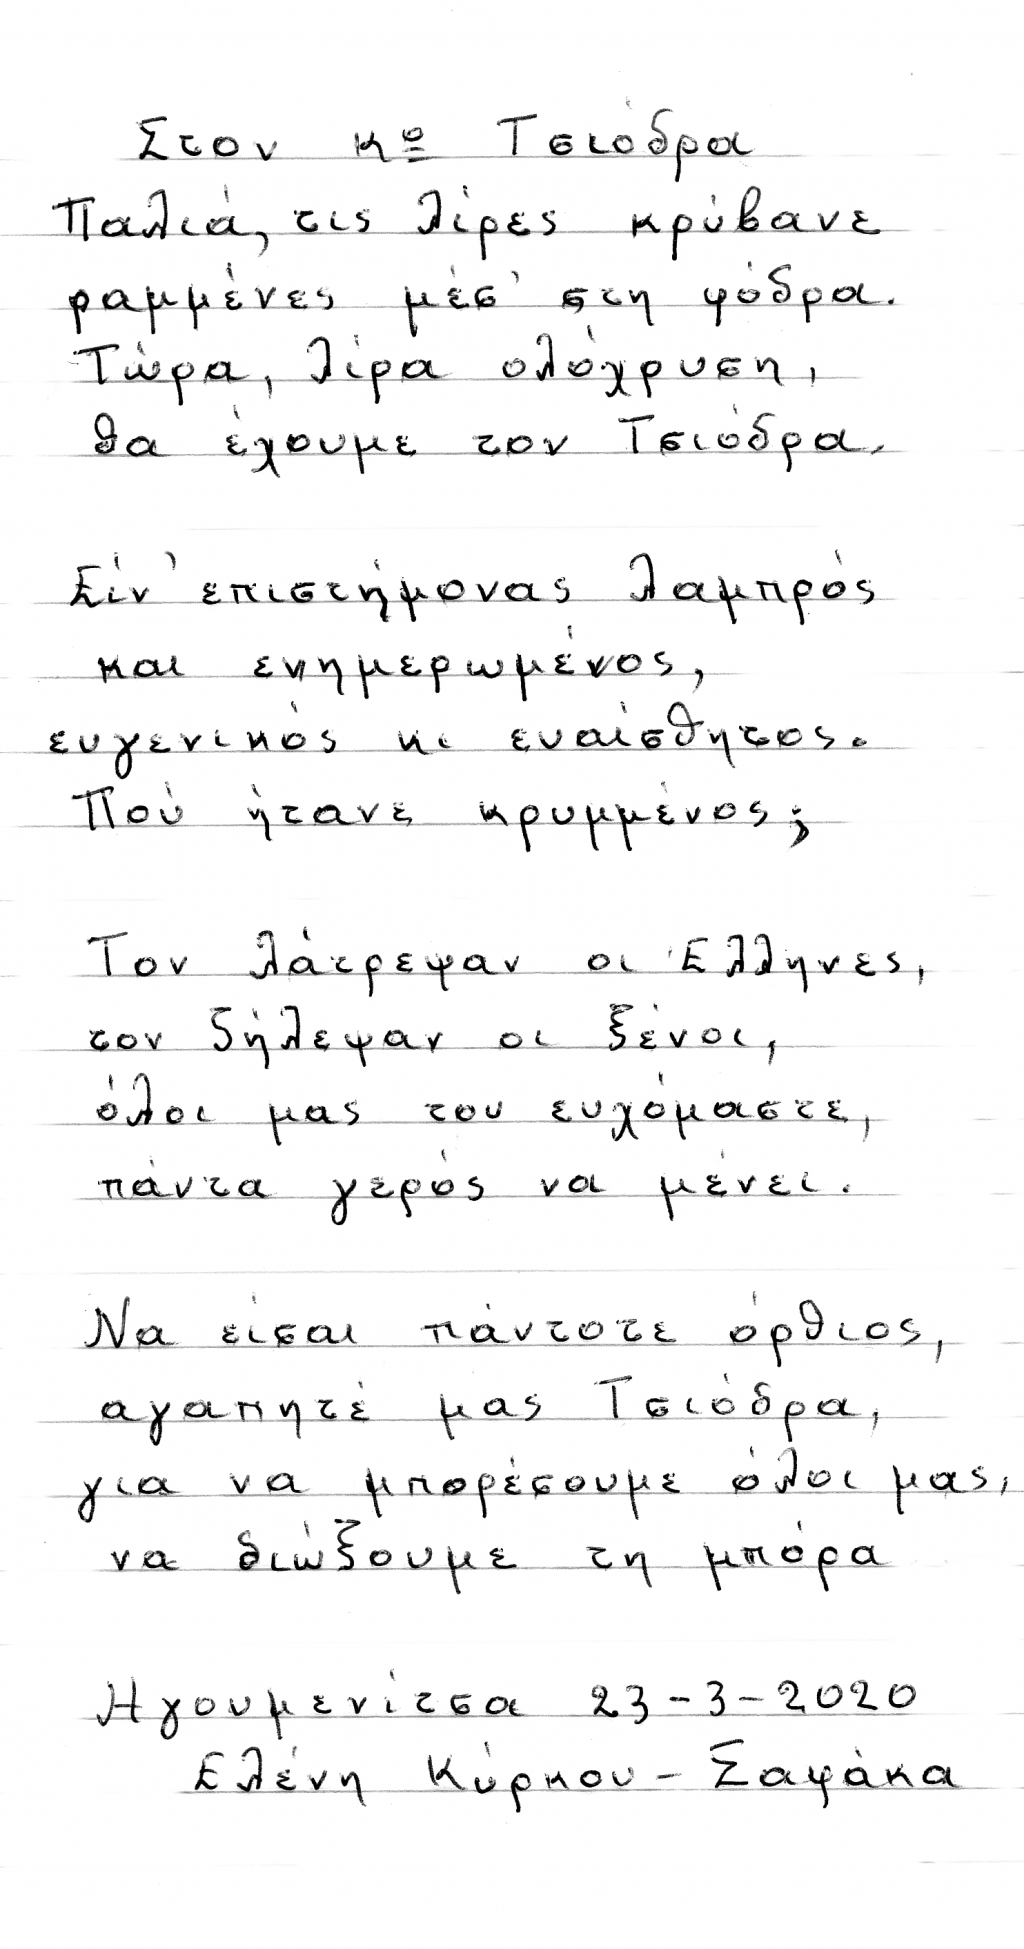 Στον κο Τσιόδρα
Παλιά, τις λίρες κρύβανε
ραμμένες μέσ' στη φόδρα.
Τώρα, λίρα ολόχρυση,
θα έχουμε τον Τσιόδρα.
Είν' επιστήμονας λαμπρός
και ενημερωμένος,
ευγενικός κι ευαίσθητος.
Πού ήτανε κρυμμένος;
Τον λάτρεψαν οι Έλληνες,
τον ζήλεψαν οι ξένοι,
όλοι μας του ευχόμαστε,
πάντα γερός να μένει.
Να είσαι πάντοτε όρθιος,
αγαπητέ μας Τσιόδρα,
για να μπορέσουμε όλοι μας,
να διώξουμε τη μπόρα
Ηγουμενίτσα 23-3-2020
Ελένη Κύρκου - Σαφάκα